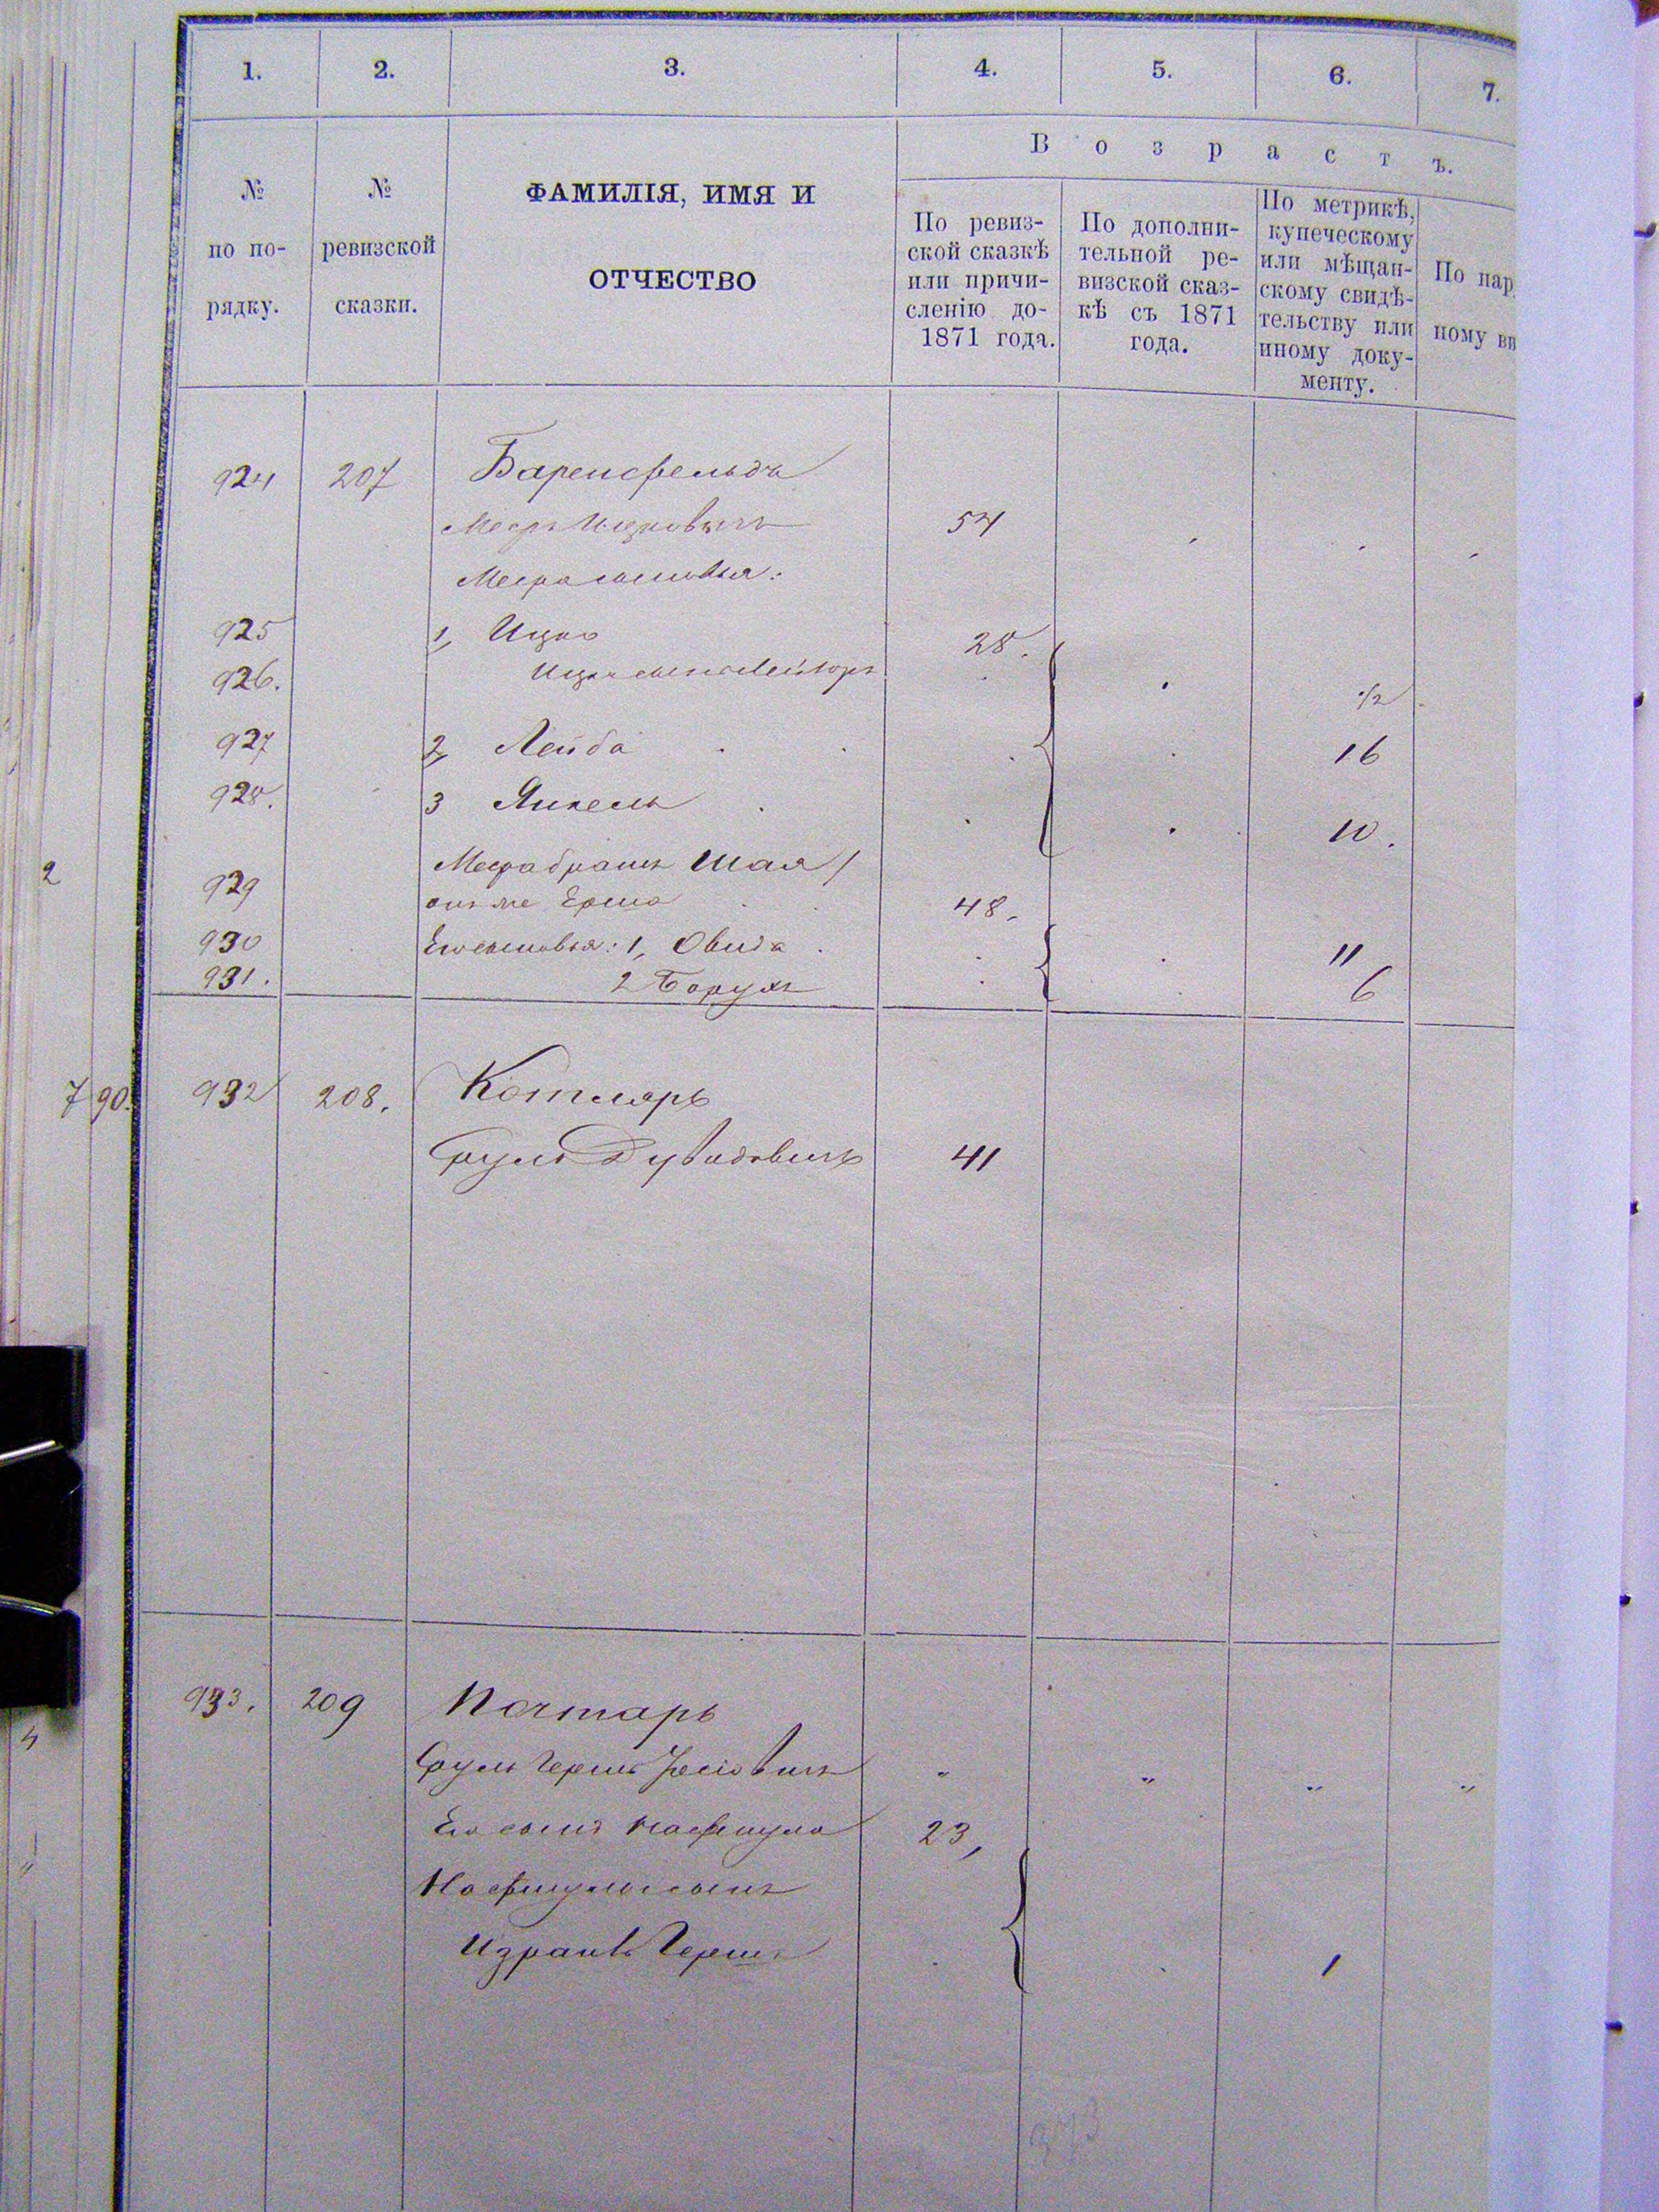 1. 2. 3. 4. 5. 6. 7.
В о з р а с т ъ.
№ по по- рядку.
№ ревизской сказки.
ФАМИЛІЯ, ИМЯ И
ОТЧЕСТВО
По ревиз-
ской сказкѣ
или причи-
сленію до-
1871 года.
По дополни-
тельной ре-
визской сказ-
кѣ съ 1871
года.
По метрикѣ,
купеческому
или мѣщан-
скому свидѣ-
тельству или
иному доку-
менту.
По нар
ному ви
924 207 Баренфельдъ
Мееръ Ицковичъ 54
Меера сыновья:
925 1, Ицко 28.
926. Ицка сынъ
927 2, Лейба 16
928. 3 Янкель 10.
Меера братъ Шая /
2 929 онъ же Ерша 48.
930 Его сыновья: 1, Овида 11
931. 2 Борухъ 6
790. 932 208. Котляръ
Сруль Дувидовичъ 41
933. 209 Почтарь
Сруль Гершъ Іосіовичъ " " " "
Его сынъ Нафтула 23,
Нафтулы сынъ
Израиль Гершъ 1